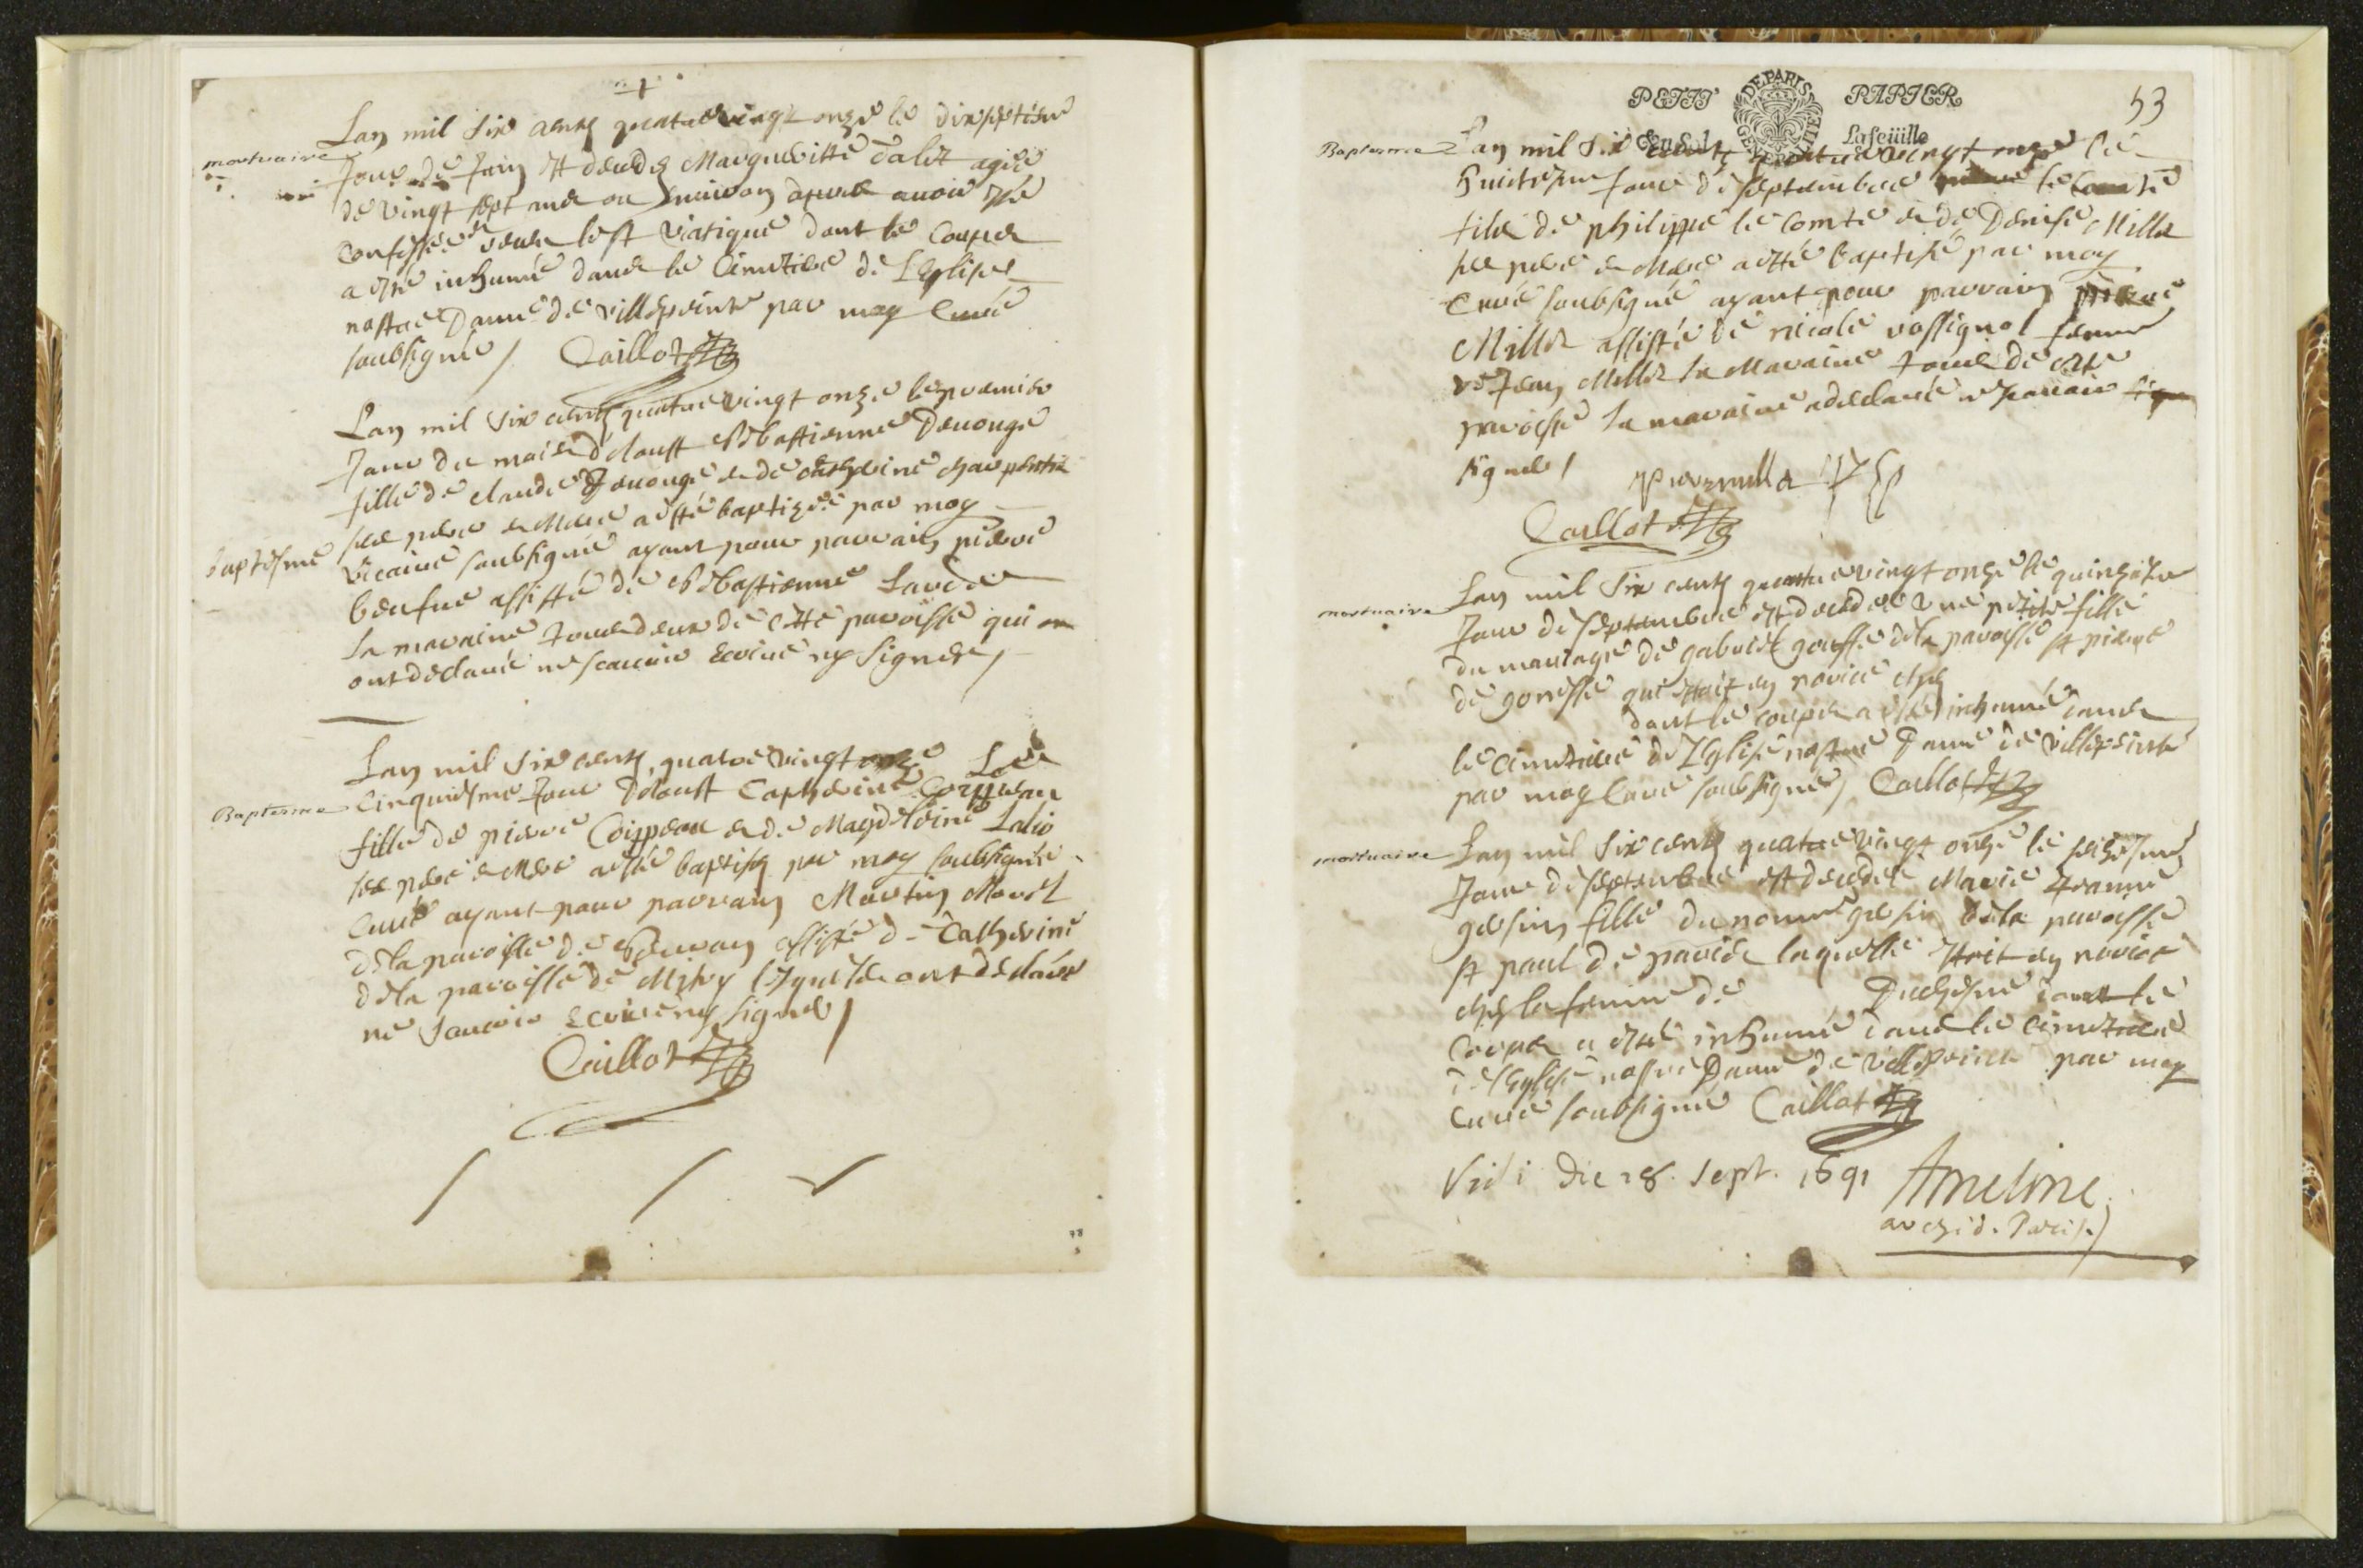 mortuaire
Lan mil six cents quatre vingt onze le dixseptiesme
Jour de Juin est decedez Margueritte Daliz agée
de vingt sept ans ou environ apres avoir esté
confessée receu le st viatique dont le corps
a esté inhumé dans le cimetiere de l'Eglise
nostre Dame de villepeinte par moy Curé
soubsigné / Caillot
baptesme
Lan mil six cents quatre vingt onze le premier
Jour du mois d'Aoust Sebastienne Devouge
fille de claude Devouge et de catherine charpentier
ses pere et Mere a esté baptizée par moy
vicaire soubsigné ayant pour parrain pierre
assisté de Sebastienne
la maraine tous deux de cette paroisse qui
ont declaré ne scavoir Ecrire ny signer /
Baptesme
Lan mil six cents quatre vingt onze Le
cinquiesme Jour Daoust Catherine Coippeau
fille de pierre Coippeau et de Magdeleine
ses pere et Mere a esté baptisée par moy soubsigné
Curé ayant pour parrain Martin Morel
de la paroisse de assisté de Catherine
de la paroisse de Mitry lesquels ont declaré
ne scavoir ecrire ny signer /
Caillot
PETIT PAPIER
DE PARIS GENERALITE
Lafeüille
53
Baptesme
Lan mil six cents quatre vingt onze le
huictiesme Jour de septembre le Comte
fils de philippe le comte et de Denise Miller
ses pere et Mere a esté baptisé par moy
Curé soubsigné ayant pour parrain pierre
Miller assisté de nicole rossignol femme
de Jean Miller la Maraine tous de cette
paroisse la maraine a declaré ne scavoir
signer / pierre miller
Caillot
mortuaire
Lan mil six cents quatre vingt onze le quinziesme
Jour de septembre est decedée une petite fille
du mariage de gabriel de la paroisse st pierre
de gonesse qui estoit en nourice chez
dont le corps a esté inhumé dans
le cimetiere de l'Eglise nostre Dame de villepeinte
par moy Curé soubsigné / Caillot
mortuaire
Lan mil six cents quatre vingt onze le seiziesme
Jour de septembre est decedée Marie Jeanne
gersin fille du nommé gersin de la paroisse
st paul de paris laquelle estoit en nourice
chez la femme de Duchesne dont le
corps a esté inhumé dans le cimetiere
de l'Eglise nostre Dame de villepeinte par moy
Curé soubsigné Caillot
Vidi die 28. Sept. 1691 Ameline
archid. Paris.